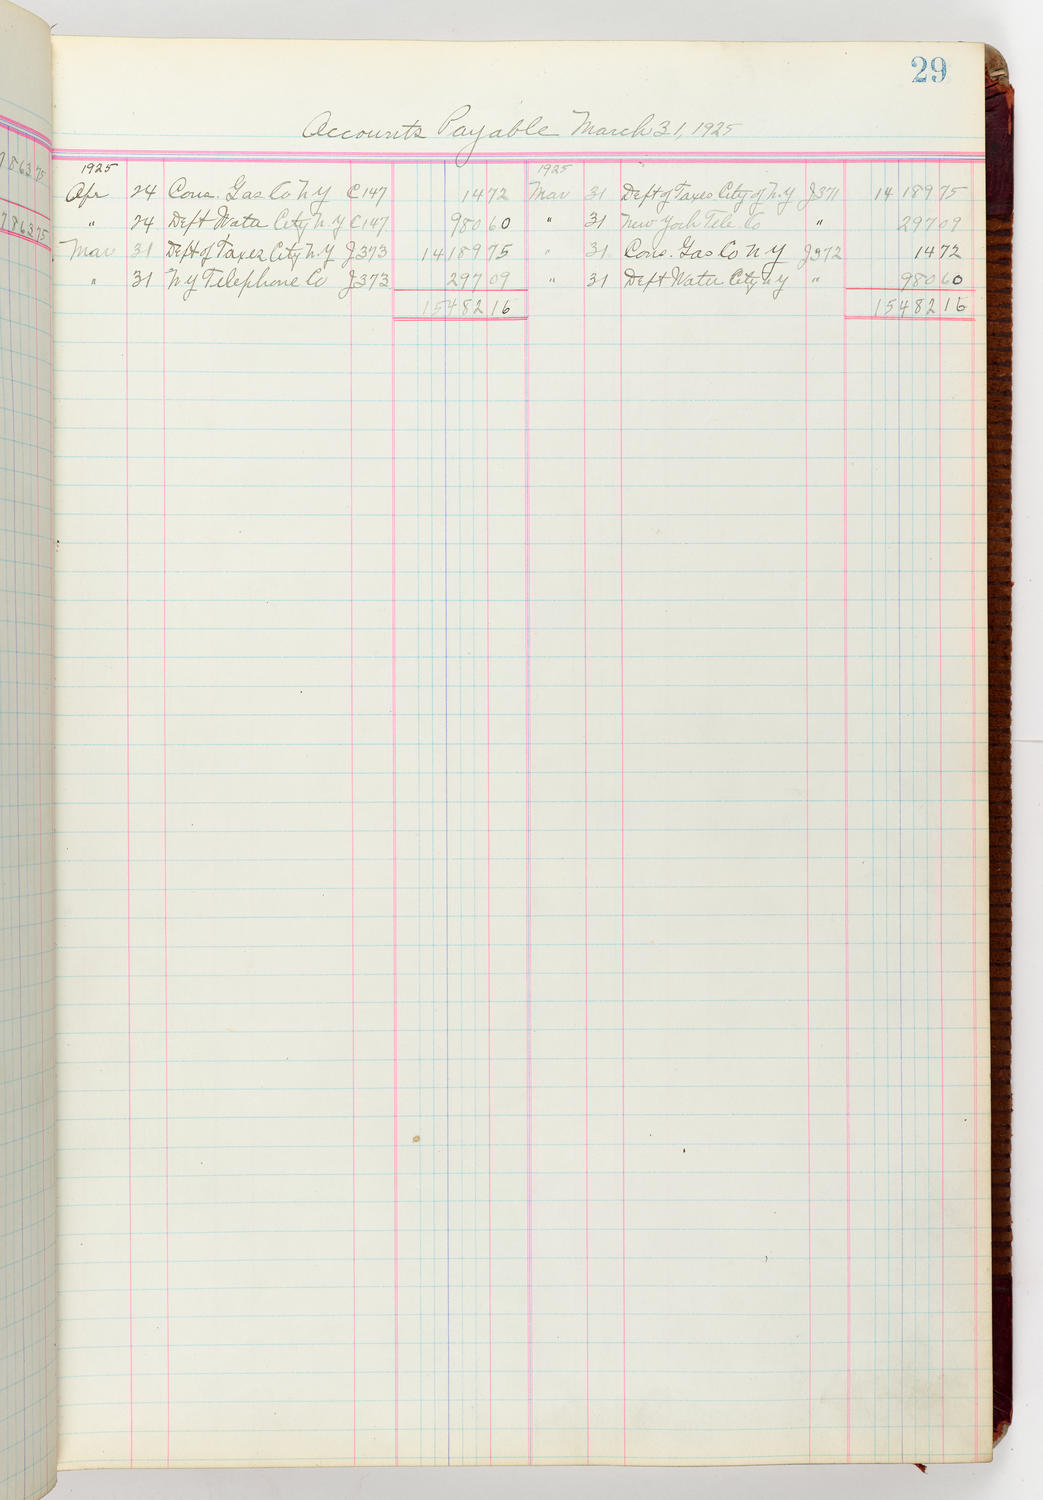 29
Accounts Payable March 31, 1925
1925
Apr 24 Cons. Gas Co N Y C147 14 72
" 24 Dept Water City N.Y C147 980 60
Mar 31 Dept of Taxes City N.Y J373 14189 75
" 31 N Y Telephone Co J373 297 09
15482 16
1925
Mar 31 Dept of Taxes City of N.Y J371 14189 75
" 31 New York Tele. Co " 297 09
" 31 Cons. Gas Co N Y J372 14 72
" 31 Dept Water City N Y " 980 60
15482 16
7863 75
7863 75